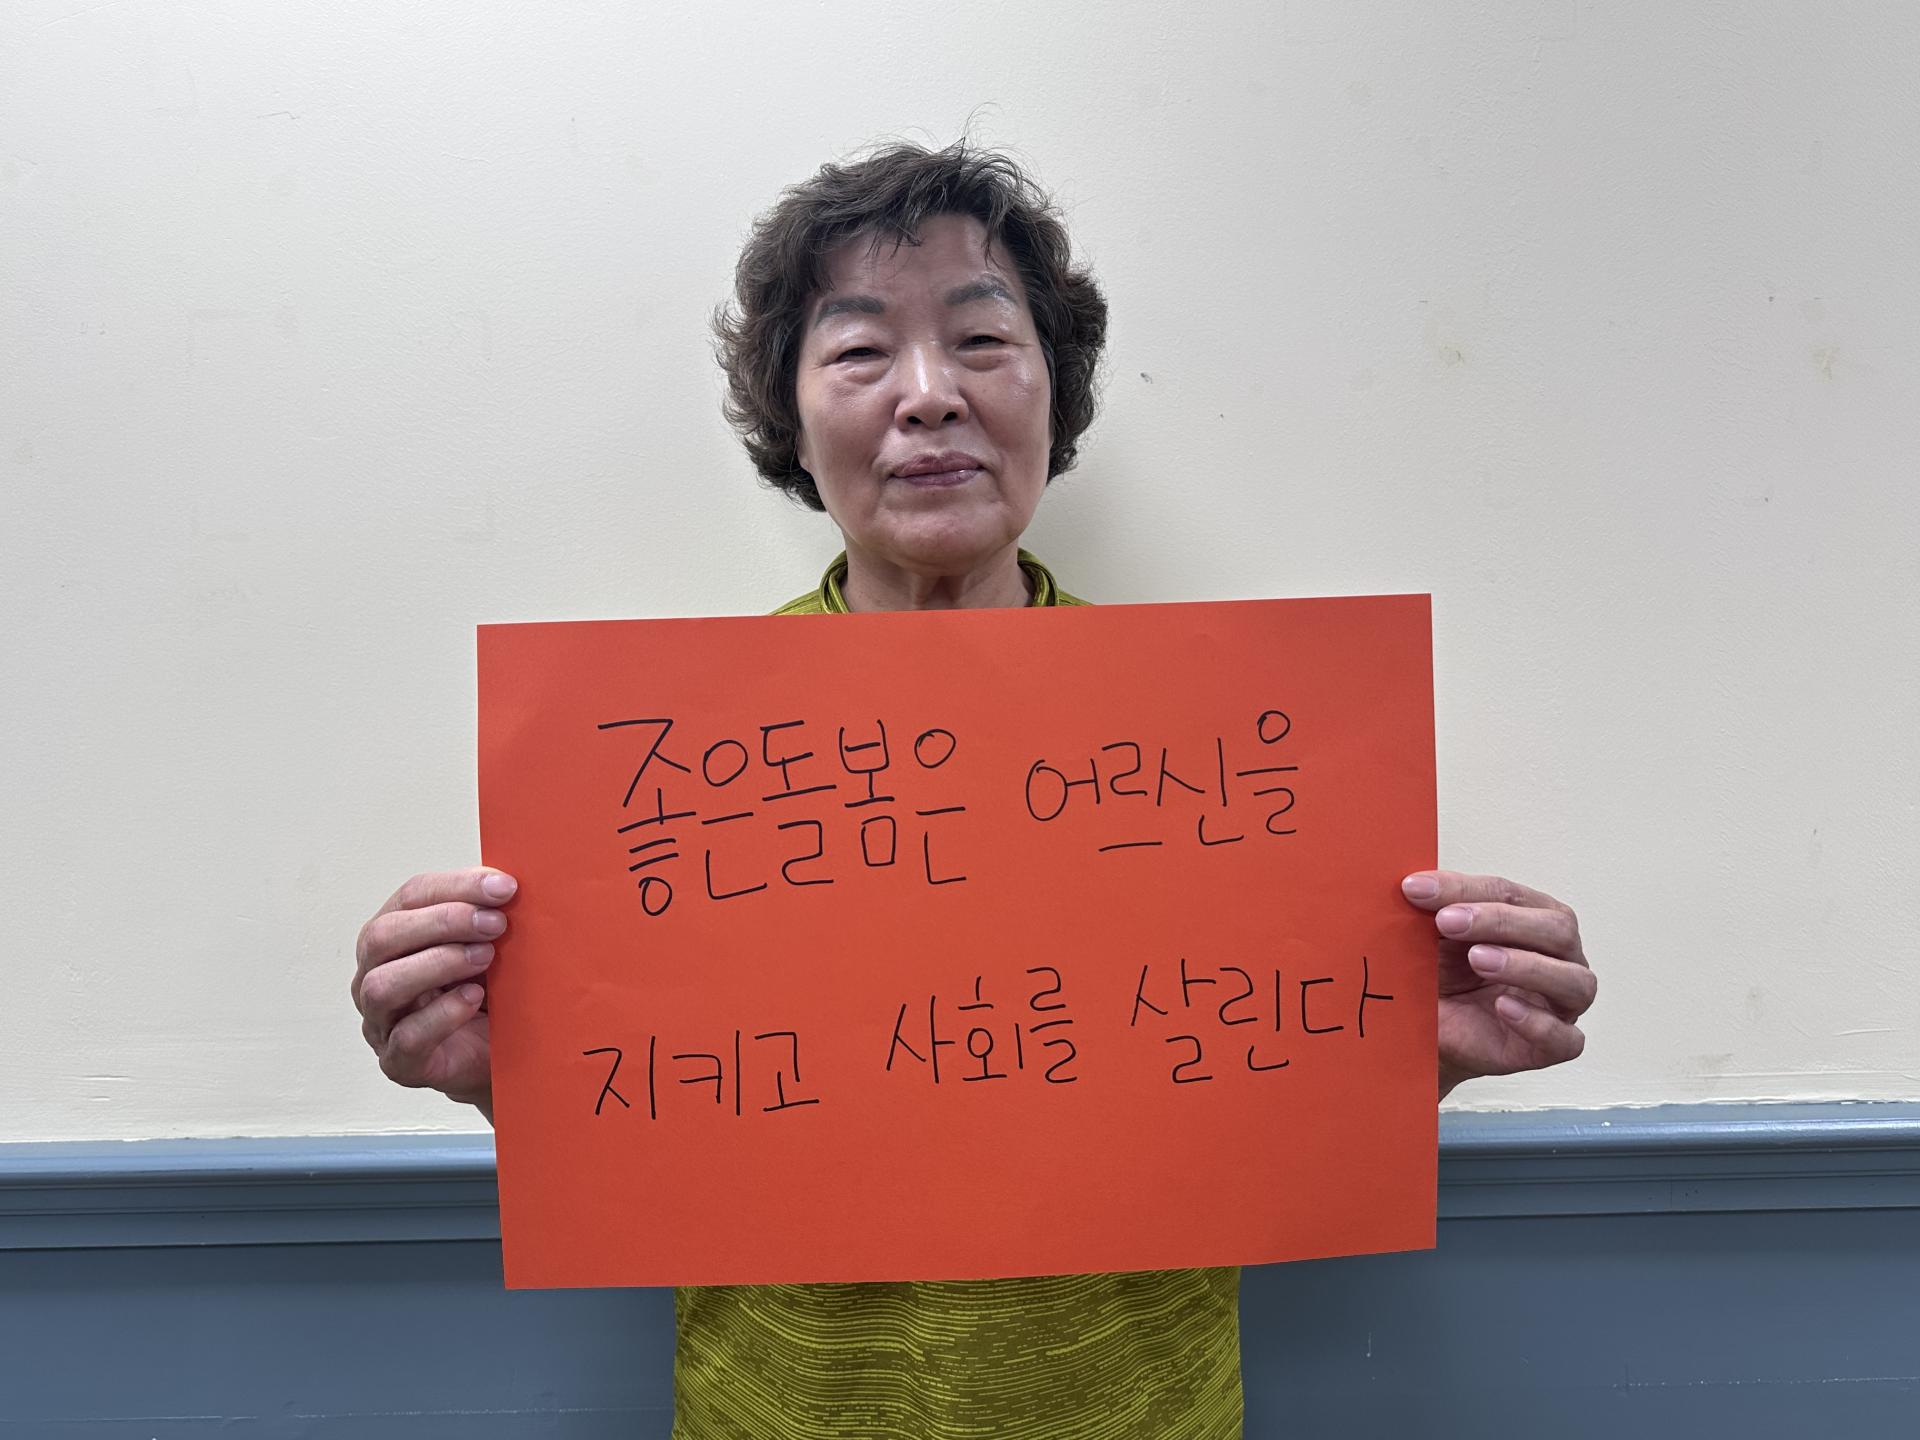 좋은돌봄은 어르신을
지키고 사회를 살린다